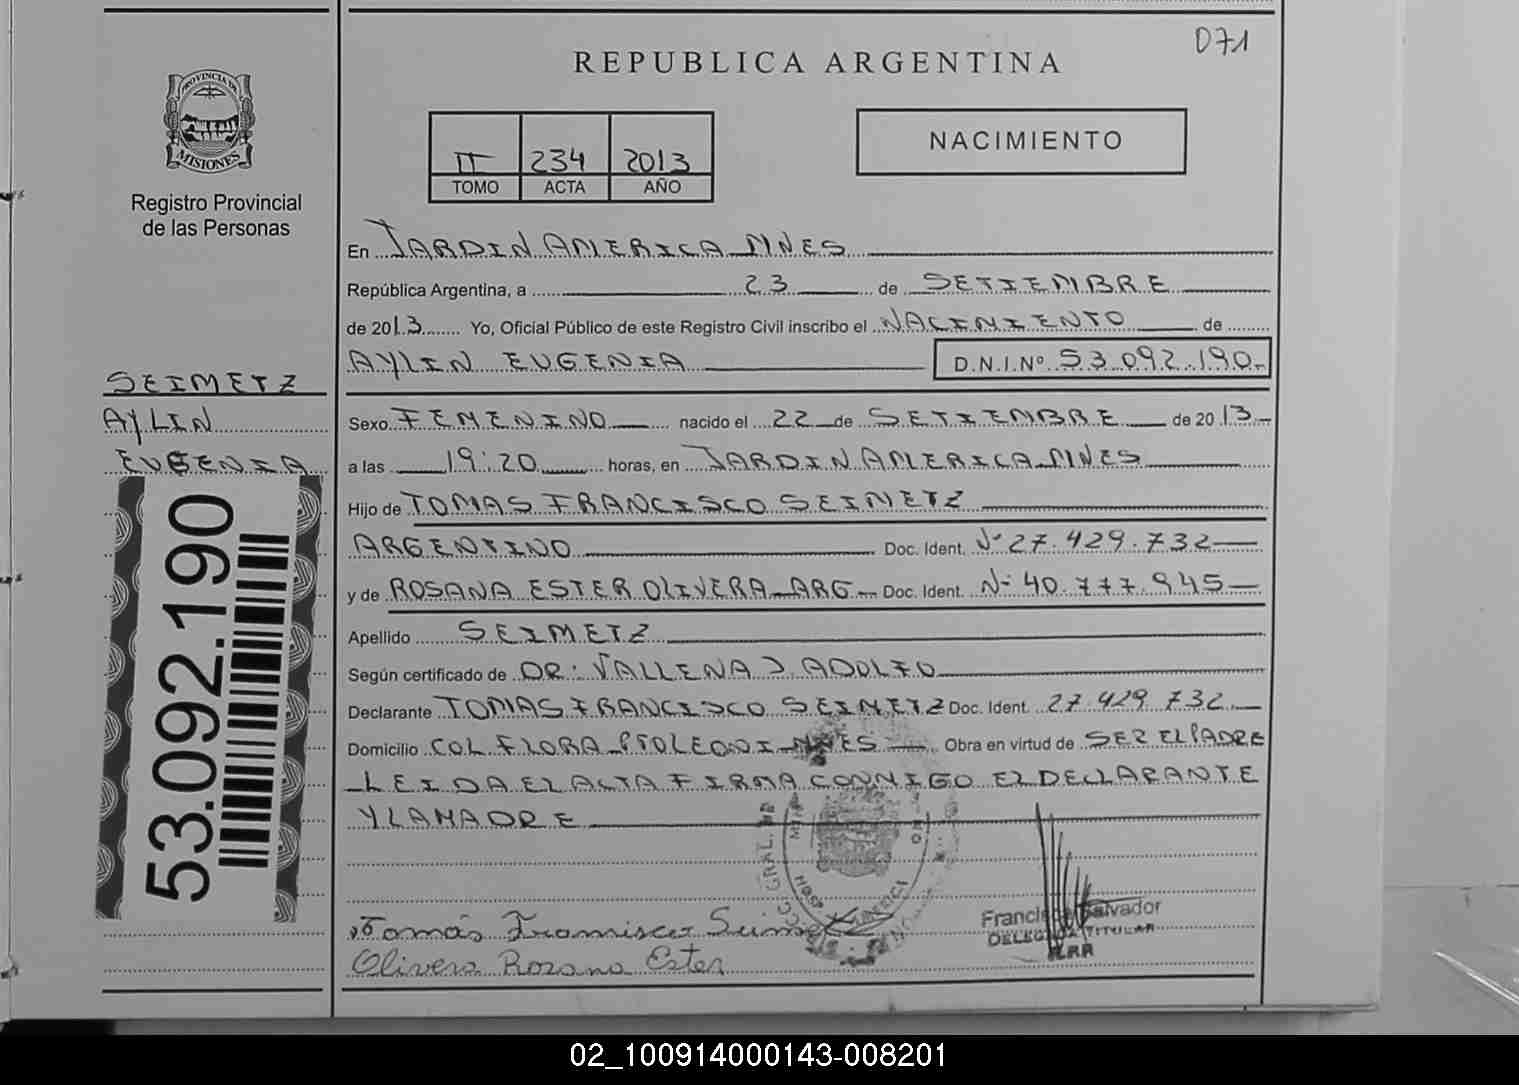 071
REPUBLICA ARGENTINA
PROVINCIA DE
MISIONES
Registro Provincial
de las Personas
II 234 2013
TOMO ACTA AÑO
NACIMIENTO
En JARDIN AMERICA MNES
República Argentina, a 23 de SETIEMBRE
de 2013 Yo, Oficial Público de este Registro Civil inscribo el NACIMIENTO de
AYLIN EUGENIA D.N.I.Nº 53.092.190-
SEIMETZ
AYLIN
EUGENIA
53.092.190
Sexo FEMENINO nacido el 22 de SETIEMBRE de 2013
a las 19:20 horas, en JARDIN AMERICA MNES
Hijo de TOMAS FRANCISCO SEIMETZ
ARGENTINO Doc. Ident. Nº 27.429.732
y de ROSANA ESTER OLIVERA ARG Doc. Ident. Nº 40.777.945
Apellido SEIMETZ
Según certificado de DR: VALLENA J. ADOLFO
Declarante TOMAS FRANCISCO SEIMETZ Doc. Ident. 27.429.732
Domicilio COL FLORA MNES Obra en virtud de SER EL PADRE
LEIDA EL ACTA FIRMA CONMIGO EL DECLARANTE
Y LA MADRE
Tomás Francisco Seimetz
Olivera Rosana Ester
Salvador
TITULAR
02_100914000143-008201